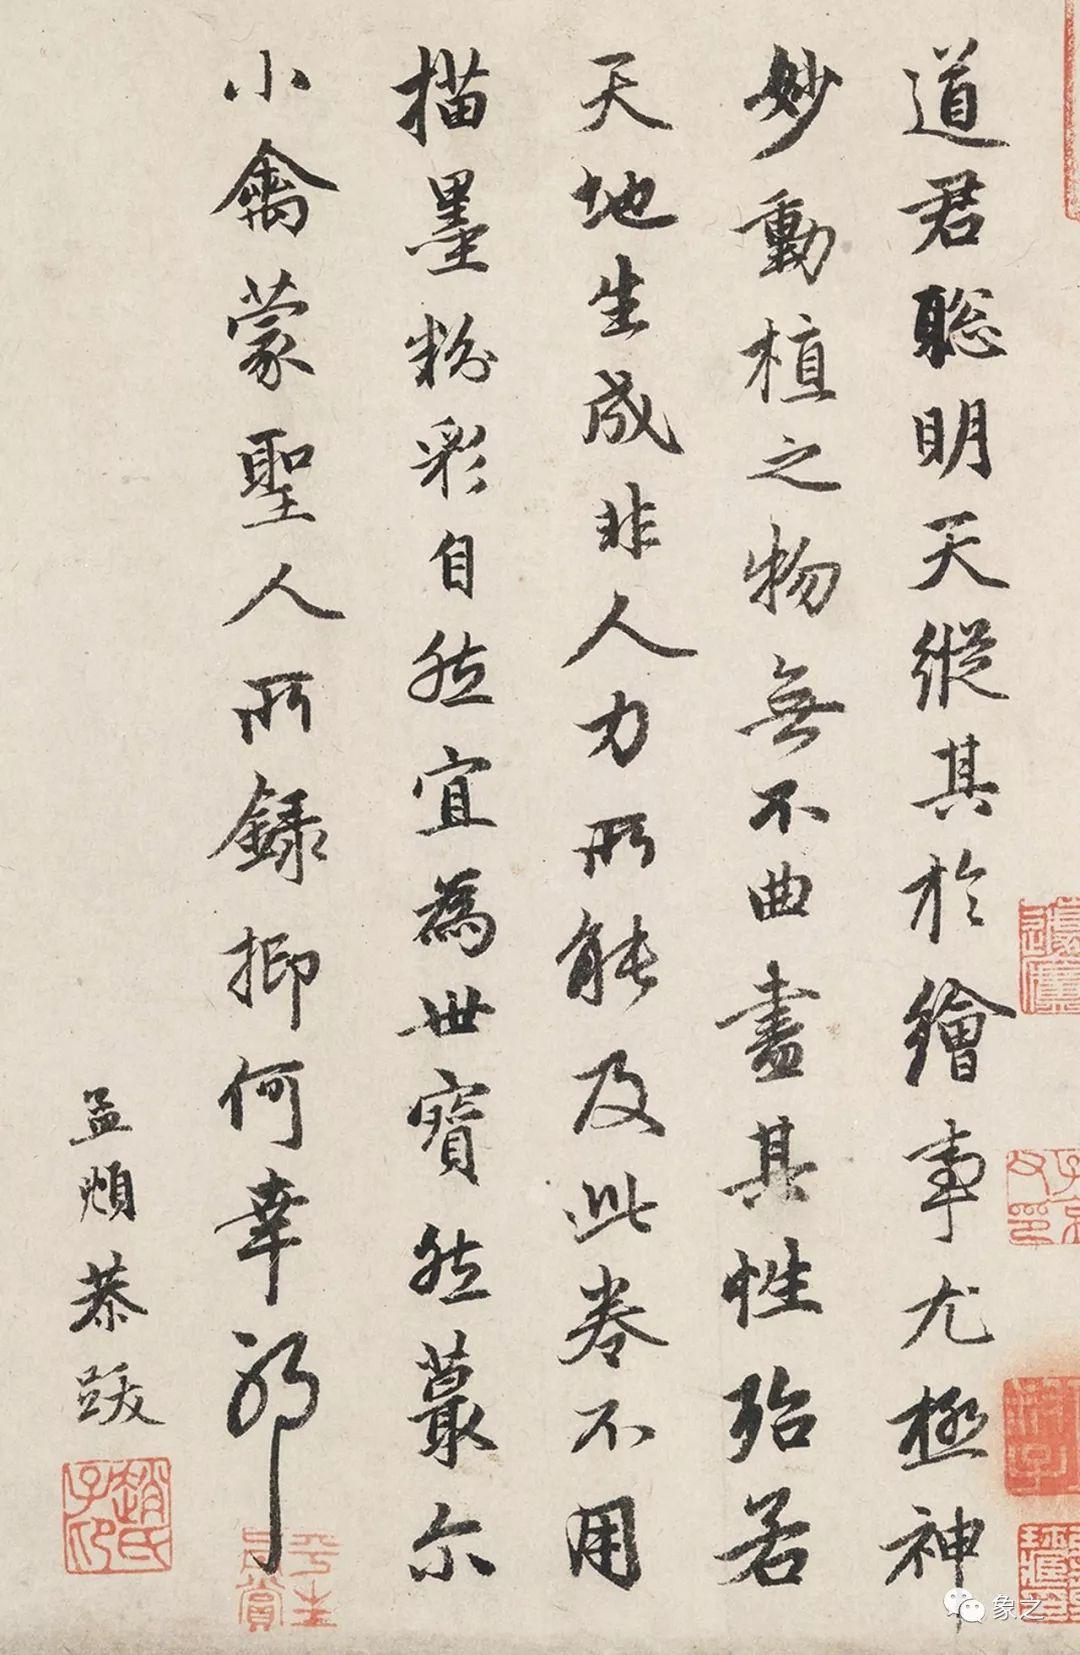 道君聡明天縱其於繪事尤極神
妙動植之物無不曲盡其性殆若
天地生成非人力所能及此卷不用
描墨粉彩自然宜為世寳然蕞尓
小禽蒙聖人所録抑何幸耶
孟頫恭跋
趙氏子昂
平生真賞
象之